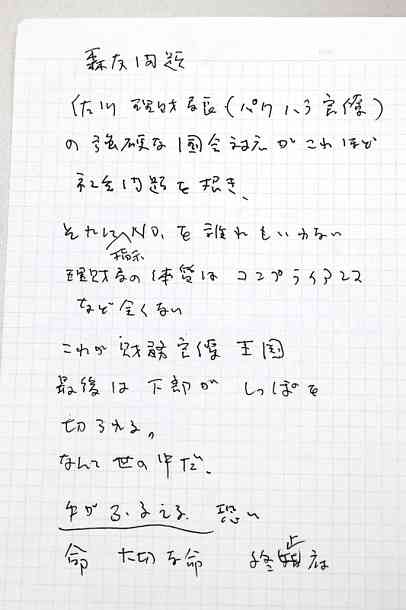 森友問題
佐川理財局長(パワハラ官僚)
の強硬な国会対応がこれほど
社会問題を招き、
それにNO.を誰れもいわない
指示
理財局の体質はコンプライアンス
など全くない
これが財務官僚王国
最後は下部がしっぽを
切られる。
なんて世の中だ、
手がふるえる 恐い
命 大切な命 終止府